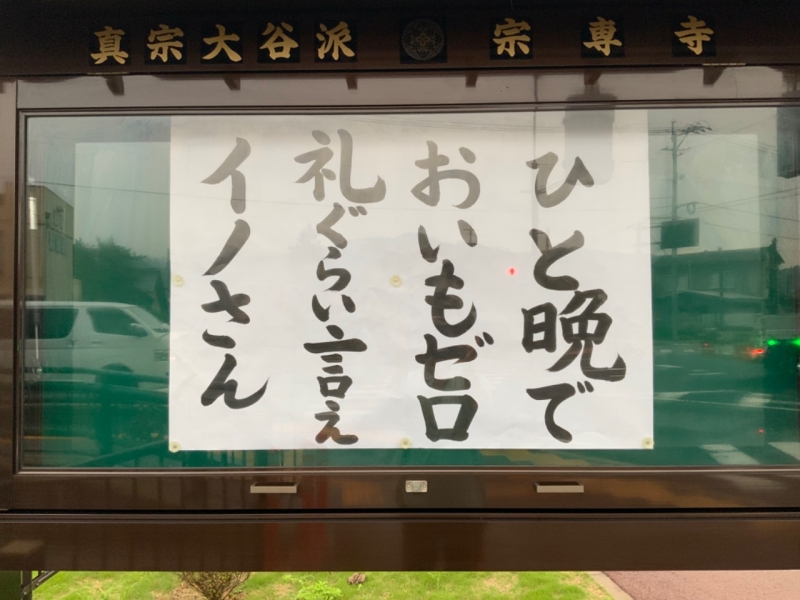 真宗大谷派 宗専寺
ひと晩で
おいもゼロ
礼ぐらい言え
イノさん